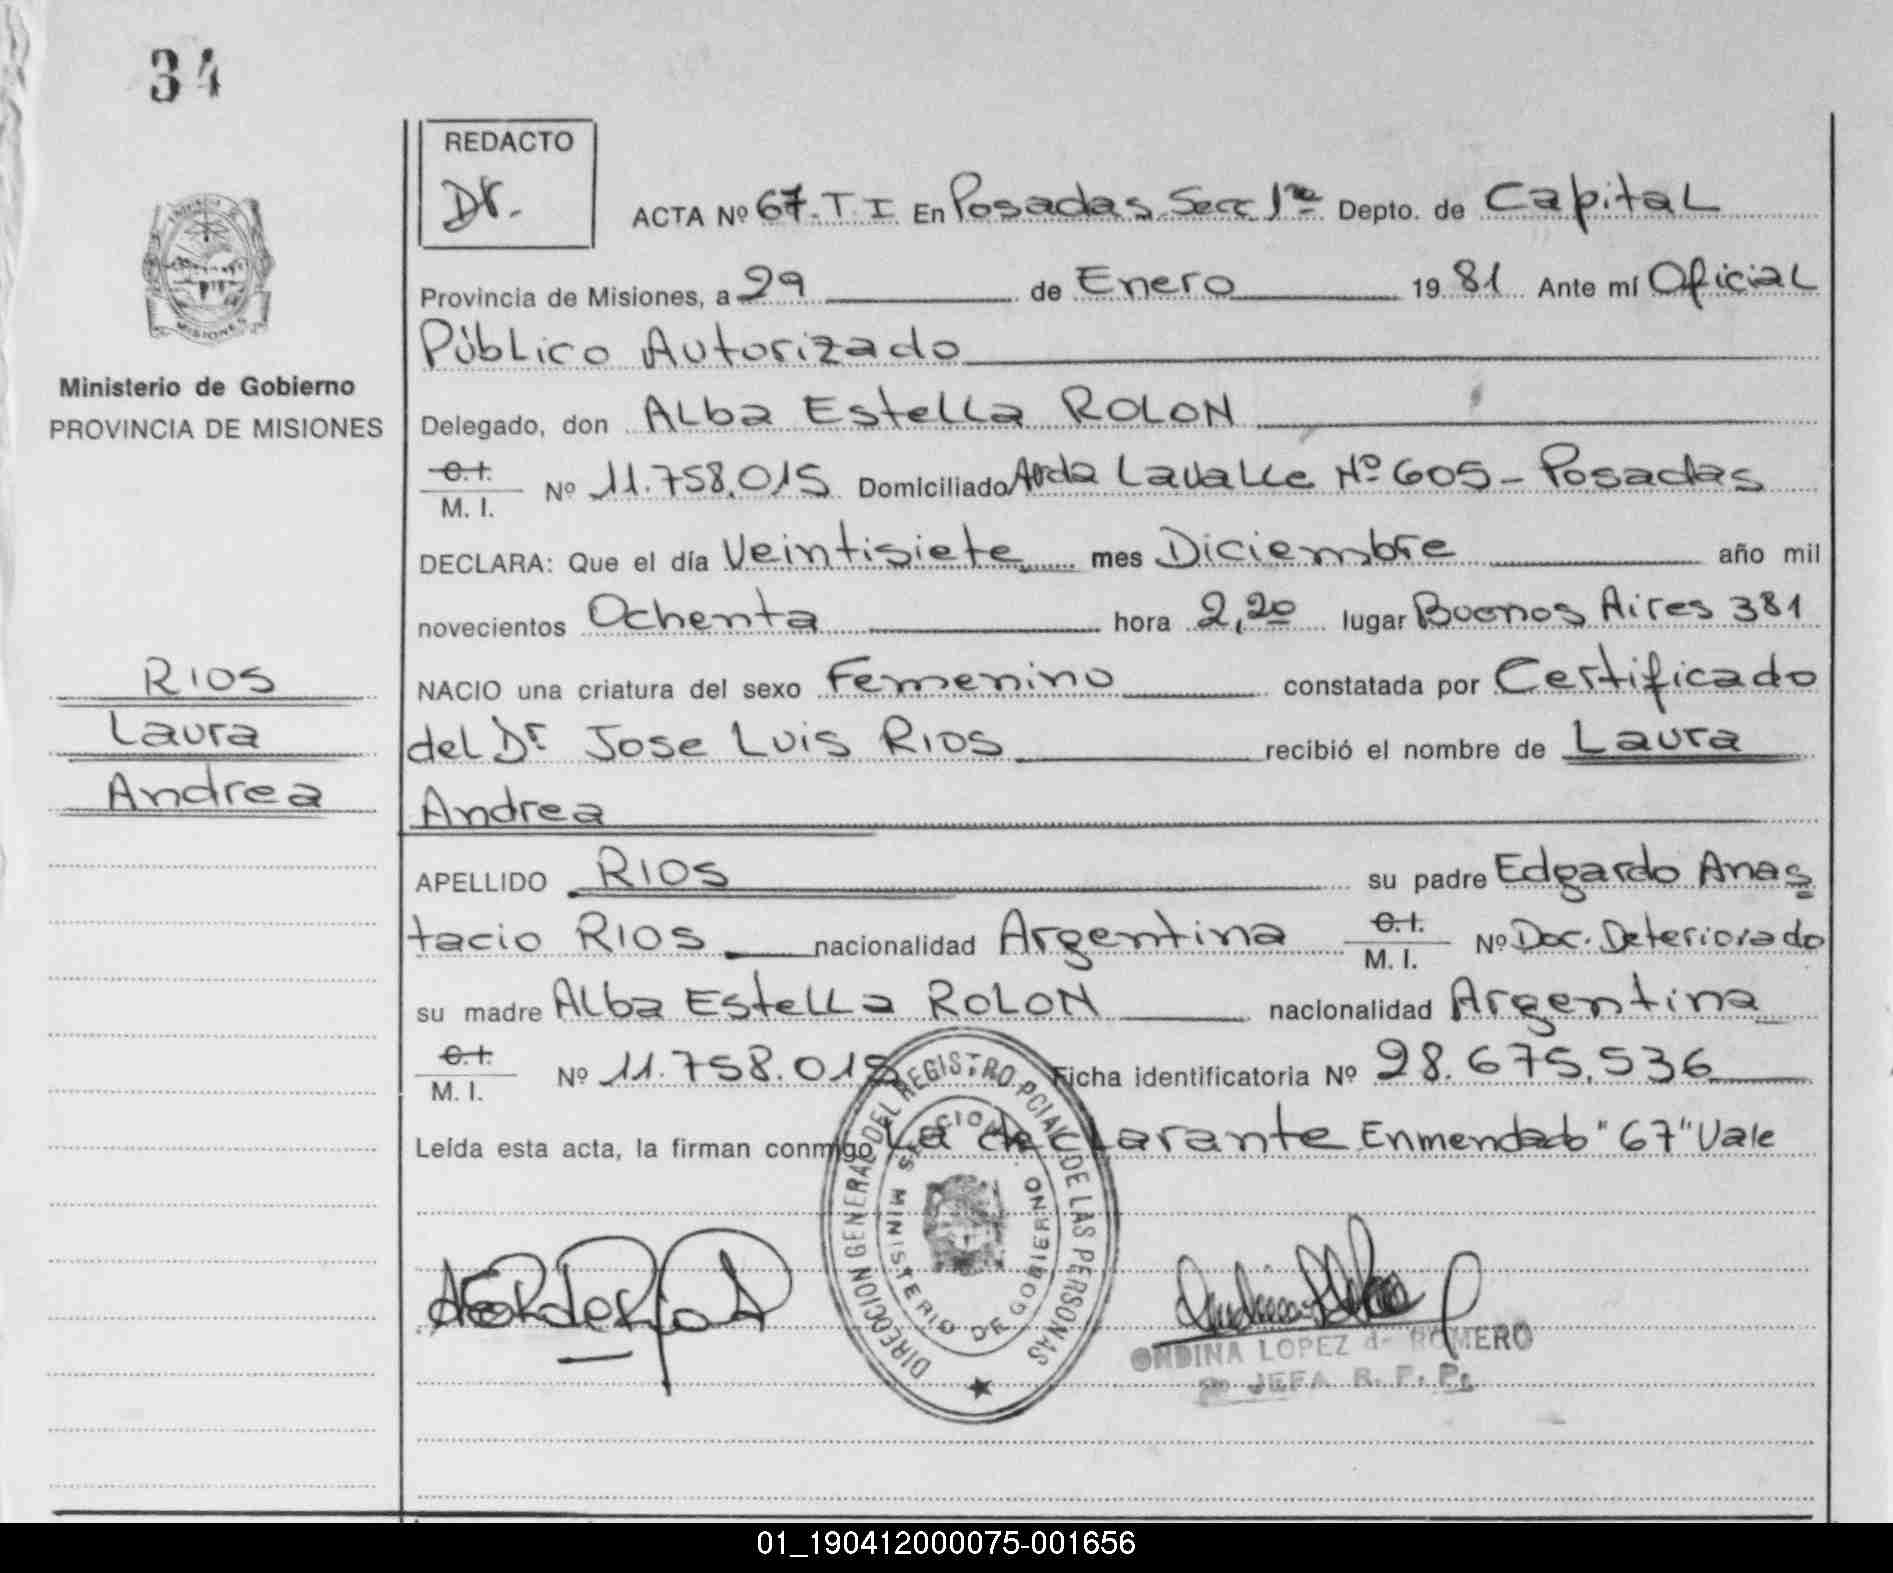 34
REDACTO
Dr.
ACTA Nº 67.T.I En Posadas Secc 1ra Depto. de Capital
Provincia de Misiones, a 29 de Enero 1981 Ante mí Oficial
Público Autorizado
Ministerio de Gobierno
PROVINCIA DE MISIONES
Delegado, don Alba Estella ROLON
C.I.
M. I. Nº 11.758.015 Domiciliado Avda Lavalle Nº 605 - Posadas
DECLARA: Que el día Veintisiete mes Diciembre año mil
novecientos Ochenta hora 2,20 lugar Buenos Aires 381
NACIO una criatura del sexo Femenino constatada por Certificado
del Dr Jose Luis RIOS recibió el nombre de Laura
Andrea
RIOS
Laura
Andrea
APELLIDO RIOS su padre Edgardo Anas
tacio RIOS nacionalidad Argentina C.I. M. I. Nº Doc. Deteriorado
su madre Alba Estella ROLON nacionalidad Argentina
C.I.
M. I. Nº 11.758.015 Ficha identificatoria Nº 28.675.536
Leída esta acta, la firman conmigo La declarante Enmendado "67" Vale
DIRECCION GENERAL DEL REGISTRO PCIAL. DE LAS PERSONAS
MINISTERIO DE GOBIERNO
MISIONES
ONDINA LOPEZ de ROMERO
JEFA R. P. P.
01_190412000075-001656